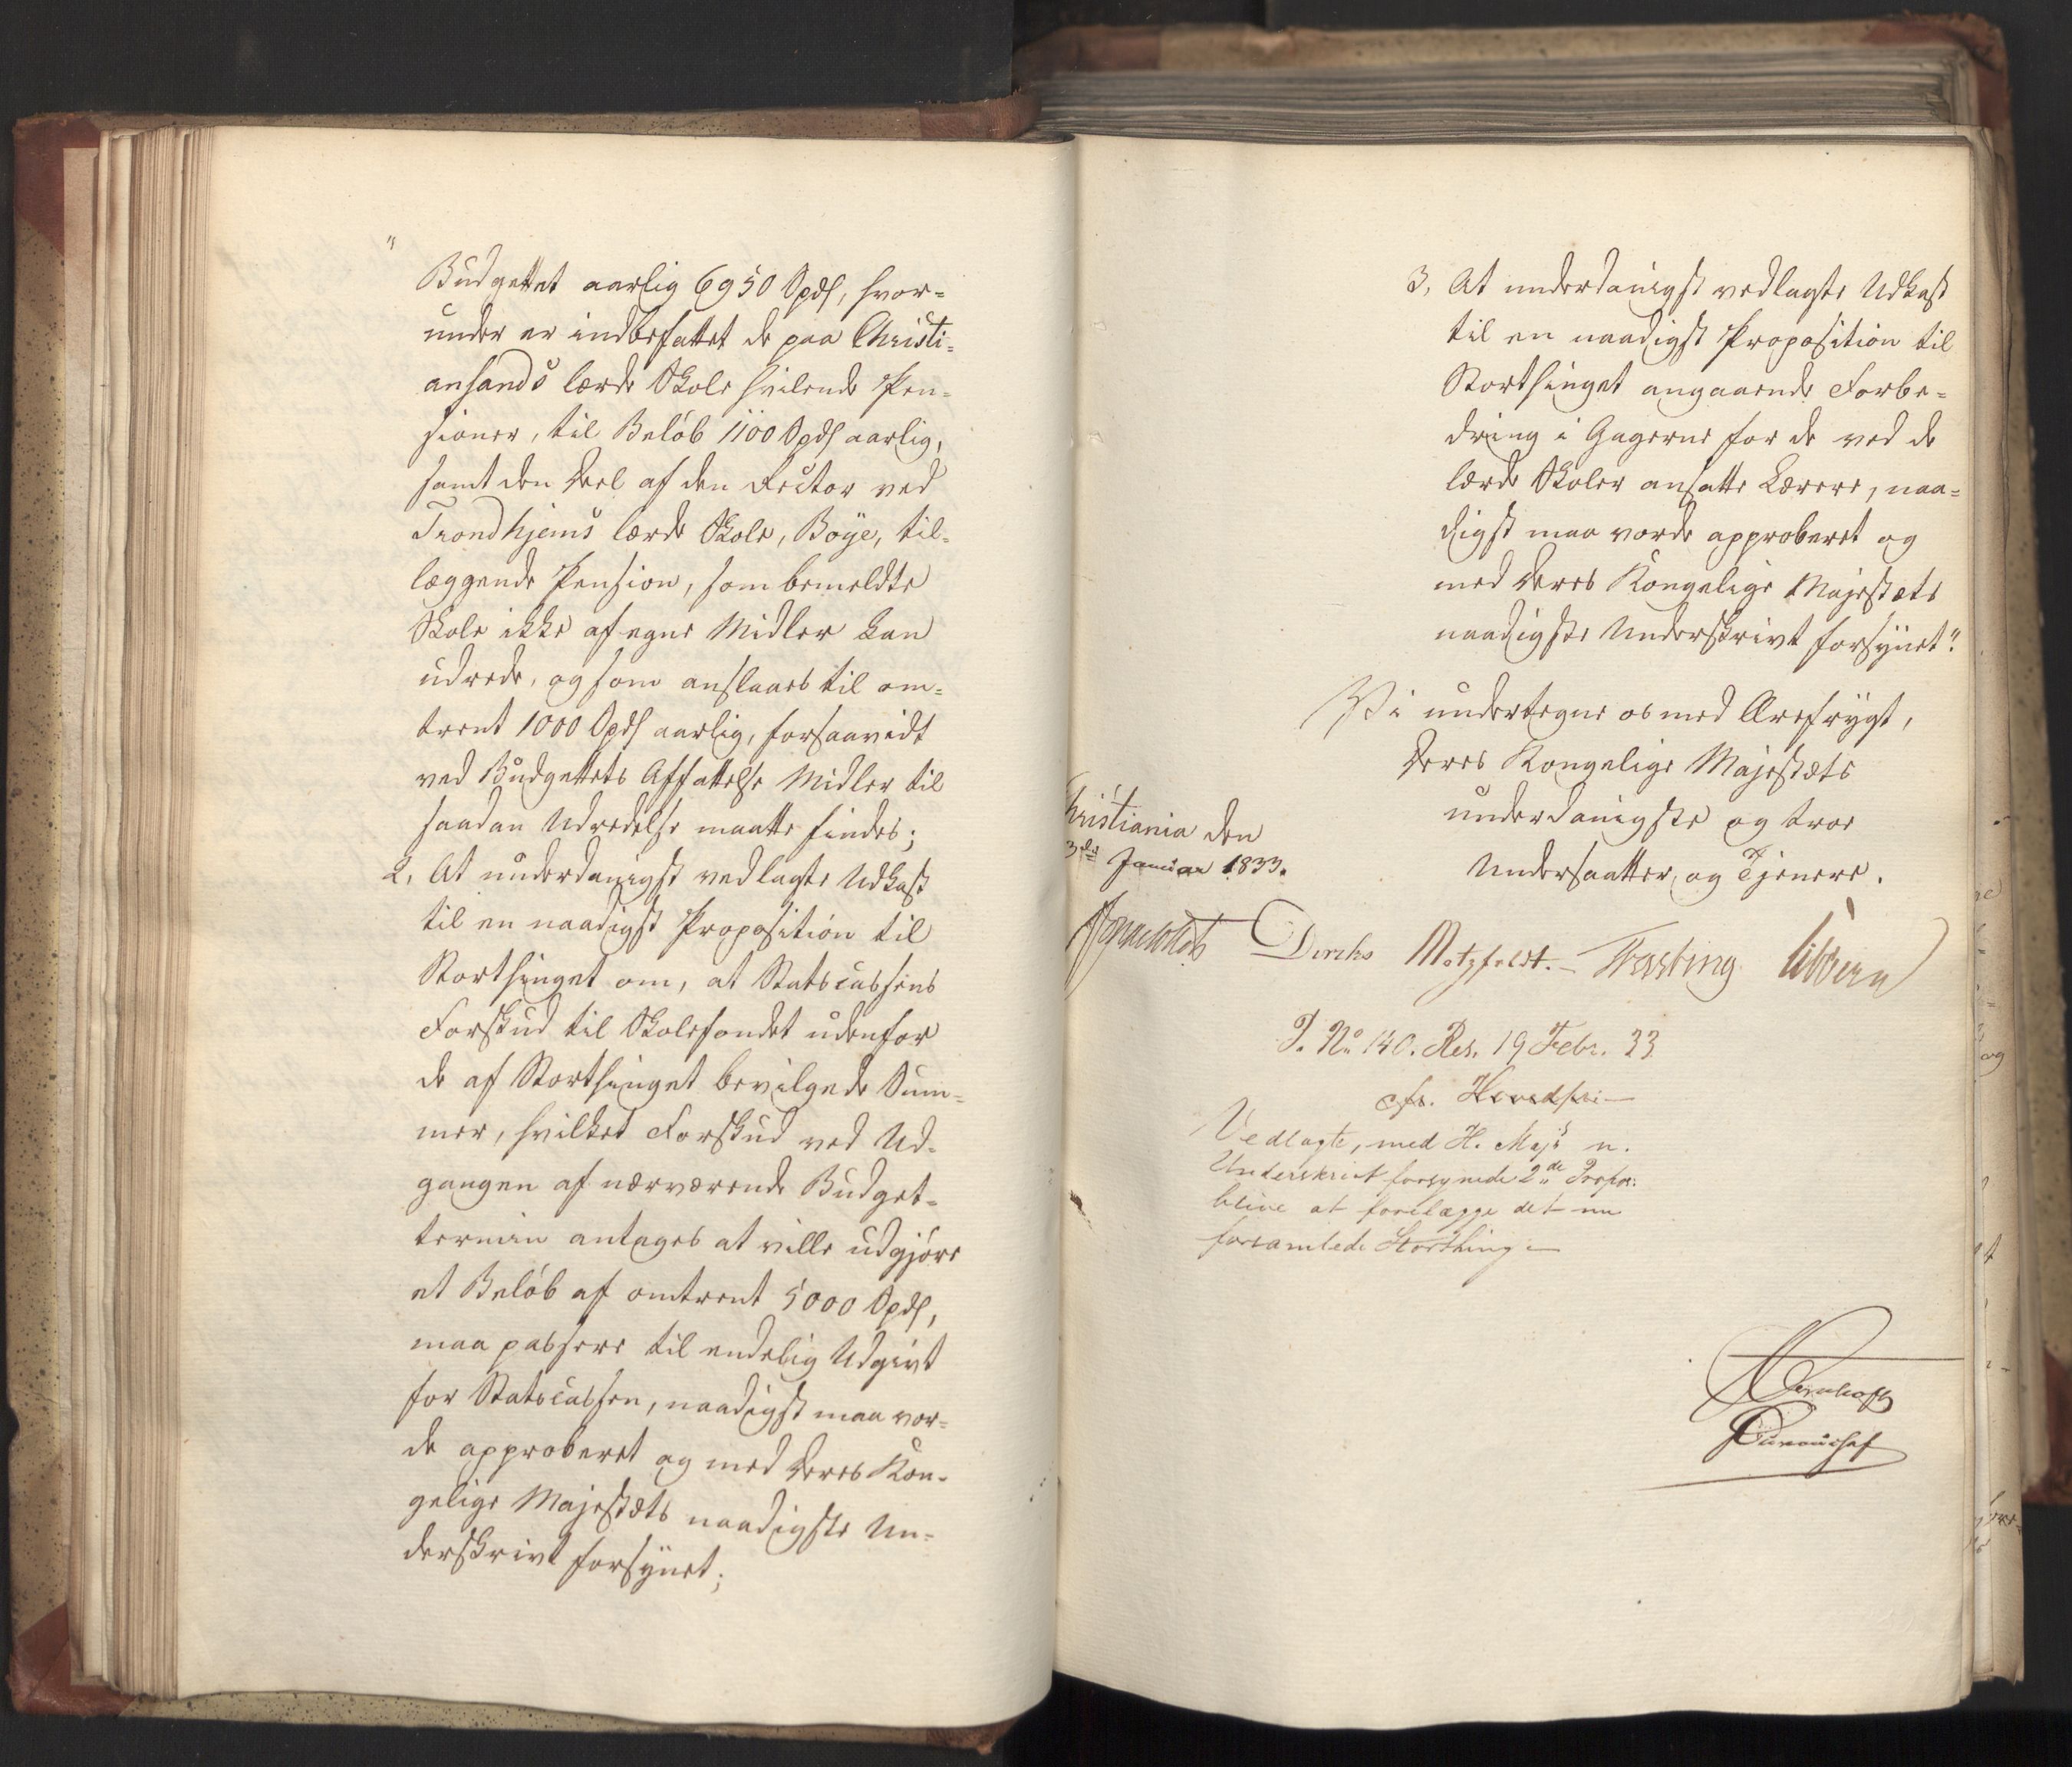 "
Budgettet aarlig 6950 Spdl, hvor=
under er indbefattet de paa Christi=
ansands lærde Skole hvilende Pen=
sioner, til Beløb 1100 Spdl aarlig,
samt den Deel af den Rector ved
Trondhjems lærde Skole, Boÿe, til=
læggende Pension, som bemeldte
Skole ikke af egne Midler kan
udrede, og som anslaaes til om=
trent 1000 Spdl aarlig, forsaavidt
ved Budgettets Affattelse Midler til
saadan Udredelse maatte findes;
2, At underdanigst vedlagte Udkast
til en naadigst Proposition til
Storthinget om, at Statscassens
Forskud til Skolefondet udenfor
de af Storthinget bevilgede Sum=
mer, hvilket Forskud ved Ud=
gangen af nærværende Budget=
termin antages at ville udgjøre
et Beløb af omtrent 5000 Spdl,
maa passere til endelig Udgivt
for Statscassen, naadigst maa vor=
de approberet og med Deres Kon=
gelige Majestæts naadigste Un=
derskrivt forsÿnet;
3, At underdanigst vedlagte Udkast
til en naadigst Proposition til
Storthinget angaaende Forbe=
dring i Gagerne for de ved de
lærde Skoler ansatte Lærere, naa=
digst maa vorde approberet og
med Deres Kongelige Majestæts
naadigste Underskrivt forsÿnet".
Vi undertegne os med Ærefrÿgt,
Deres Kongelige Majestæts
underdanigste og troe
Undersaatter og Tjenere.
hristiania den
3die Januar 1833.
Diriks Motzfeldt. Fasting Sibbern
P. No 140. Res. 19 Febr. 33
cfr.
Vedlagte, med H. Majs n.
Underskrivt forsynede 2de Propos:
blive at forelægge det nu
forsamlede Storthing